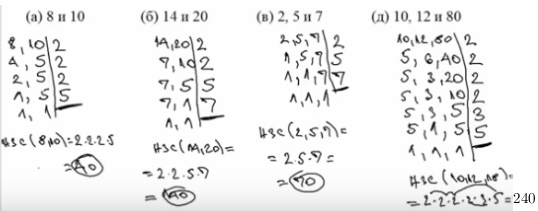 (а) 8 и 10
8, 10 | 2
4, 5 | 2
2, 5 | 2
1, 5 | 5
1, 1
НЗС(8,10)=2·2·2·5
=40
(б) 14 и 20
14, 20 | 2
7, 10 | 2
7, 5 | 5
7, 1 | 7
1, 1
НЗС(14,20)=
=2·2·5·7
=140
(в) 2, 5 и 7
2, 5, 7 | 2
1, 5, 7 | 5
1, 1, 7 | 7
1, 1, 1
НЗС(2,5,7)=
=2·5·7=
=70
(д) 10, 12 и 80
10, 12, 80 | 2
5, 6, 40 | 2
5, 3, 20 | 2
5, 3, 10 | 2
5, 3, 5 | 3
5, 1, 5 | 5
1, 1, 1
НЗС(10,12,18)=
=2·2·2·2·3·5=240